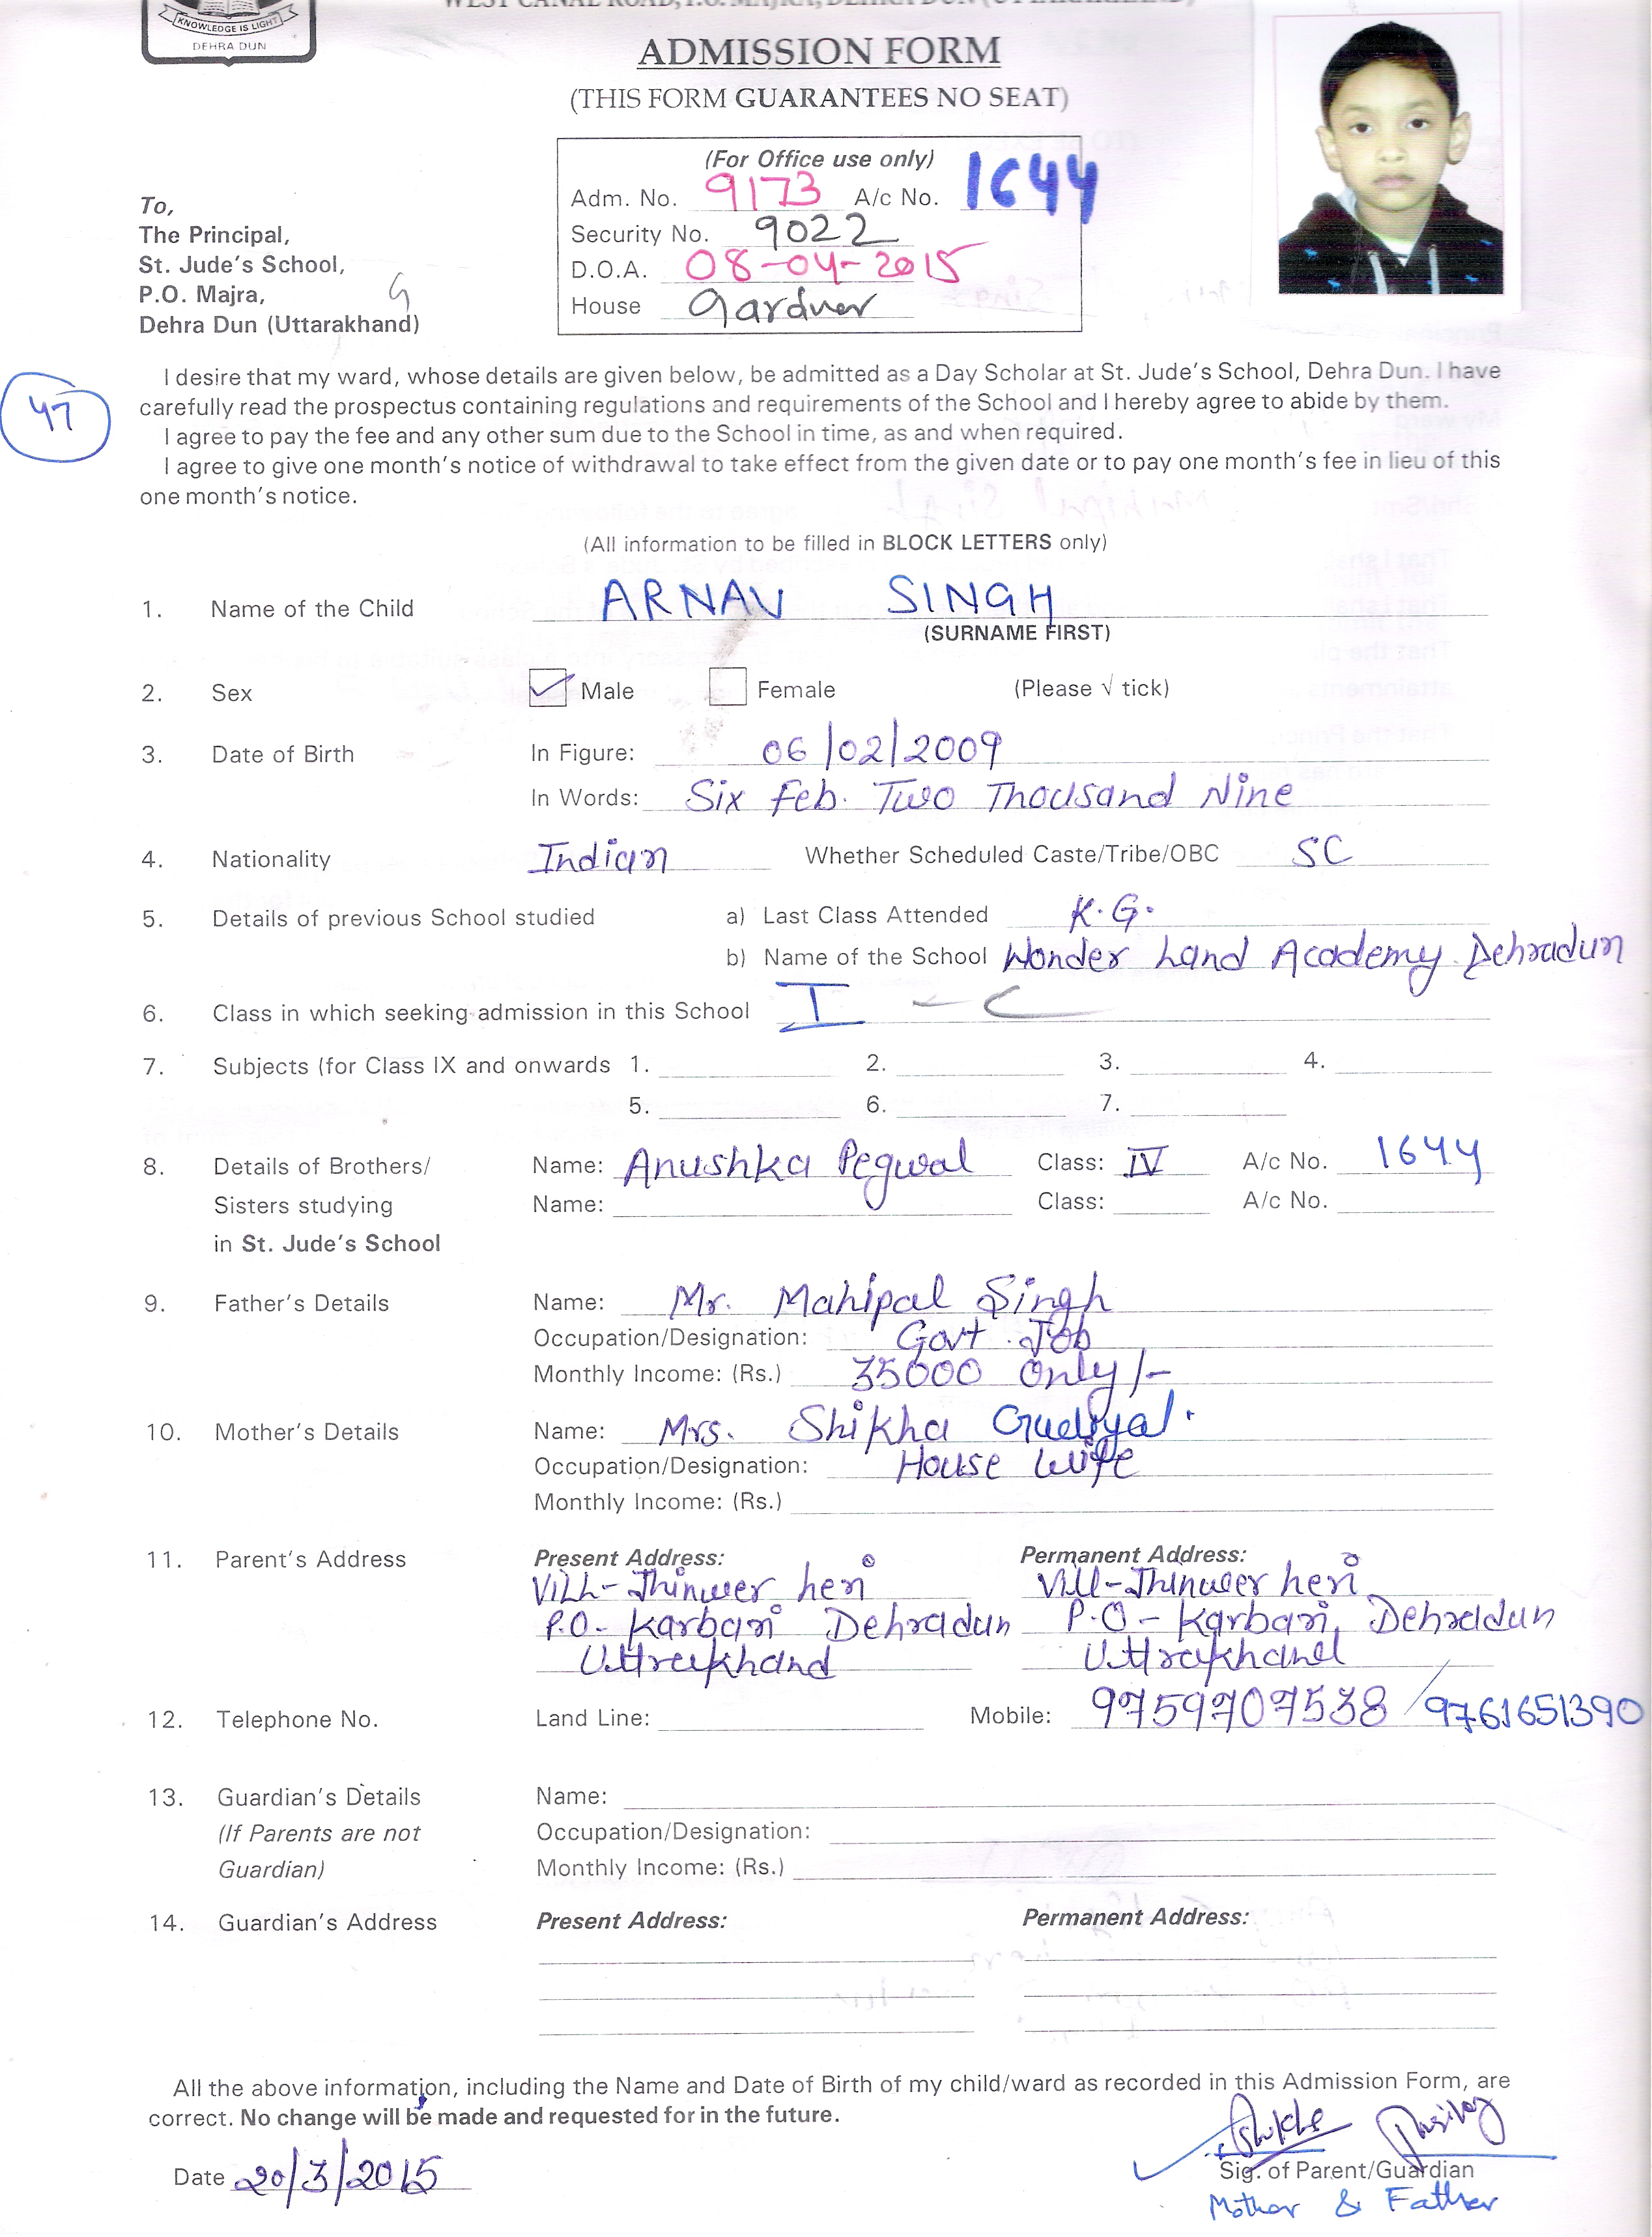 KNOWLEDGE IS LIGHT
DEHRA DUN
WEST CANAL ROAD, P.O. MAJRA, DEHRA DUN (UTTARAKHAND)
ADMISSION FORM
(THIS FORM GUARANTEES NO SEAT)
(For Office use only)
Adm. No. 9173 A/c No. 1644
Security No. 9022
D.O.A. 08-04-2015
House Gardner
To,
The Principal,
St. Jude's School,
P.O. Majra,
Dehra Dun (Uttarakhand)
G
47
I desire that my ward, whose details are given below, be admitted as a Day Scholar at St. Jude's School, Dehra Dun. I have
carefully read the prospectus containing regulations and requirements of the School and I hereby agree to abide by them.
I agree to pay the fee and any other sum due to the School in time, as and when required.
I agree to give one month's notice of withdrawal to take effect from the given date or to pay one month's fee in lieu of this
one month's notice.
(All information to be filled in BLOCK LETTERS only)
1. Name of the Child ARNAV SINGH
(SURNAME FIRST)
2. Sex Male Female (Please √ tick)
3. Date of Birth In Figure: 06/02/2009
In Words: Six Feb. Two Thousand Nine
4. Nationality Indian Whether Scheduled Caste/Tribe/OBC SC
5. Details of previous School studied a) Last Class Attended K.G.
b) Name of the School Wonder Land Academy Dehradun
6. Class in which seeking admission in this School I - C
7. Subjects (for Class IX and onwards 1. 2. 3. 4.
5. 6. 7.
8. Details of Brothers/ Name: Anushka Pegwal Class: IV A/c No. 1644
Sisters studying Name: Class: A/c No.
in St. Jude's School
9. Father's Details Name: Mr. Mahipal Singh
Occupation/Designation: Govt. Job
Monthly Income: (Rs.) 35000 Only/-
10. Mother's Details Name: Mrs. Shikha
Occupation/Designation: House Wife
Monthly Income: (Rs.)
11. Parent's Address Present Address: Permanent Address:
Vill-Jhinwer heri Vill-Jhinwer heri
P.O- Karbari Dehradun P.O- Karbari, Dehradun
Uttrakhand Uttrakhand
12. Telephone No. Land Line: Mobile: 9759707538 / 9761651390
13. Guardian's Details Name:
(If Parents are not Occupation/Designation:
Guardian) Monthly Income: (Rs.)
14. Guardian's Address Present Address: Permanent Address:
All the above information, including the Name and Date of Birth of my child/ward as recorded in this Admission Form, are
correct. No change will be made and requested for in the future.
Shikha
Date 20/3/2015 Sig. of Parent/Guardian
Mother & Father